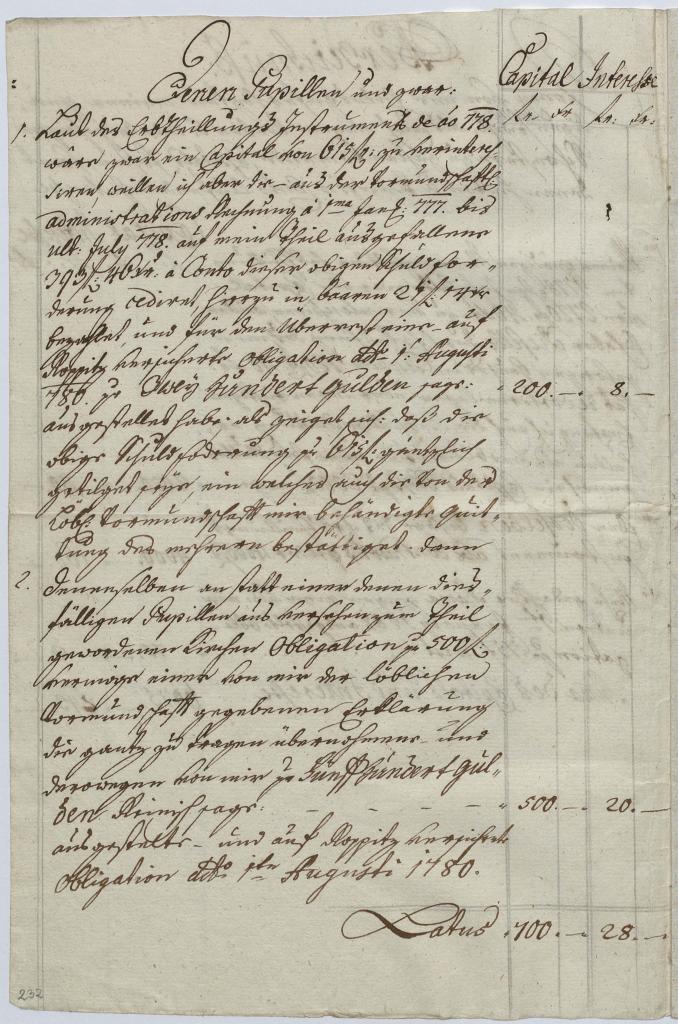 Denen Pupillen und zwar:
Capital Interesse
fr. xr fr. xr:
1. Laut des Erbtheillungs Instruments de ao 778.
wäre zwar ein Capital von 615 f: zu verinteres-
siren, weillen ich aber die – aus der Vormundschaftl:
administrations Rechnung à 1ma 777. bis
ult: July 778. auf mein Theil ausgefallene
393 f: 46 xr: à Conto dieser obigen Schuldfor-
derung cediret, hierzu in baaren 21 f: 14 xr
bezahlet, und für den Überrest eine – auf
Roppitz versicherte Obligation ddto 1: Augusti
780. pr Zwey Hundert Gulden sage: 200. — 8. —
ausgestellet habe: als zeiget sich: daß die
obige Schuldforderung pr 615 f: gäntzlich
getilget seye, ein welches auch die von der
Löbl: Vormundschaft mir behändigte Quit-
tung des mehrern bestättiget. dann
2. denenselben anstatt einer denen dies-
fälligen Pupillen aus versehen zum Theil
gewordenen Kirchen Obligation pr 500 f:
vermöge einer von mir der löblichen
Vormundschaft gegebenen Erklärung
die gantz zu tragen übernohmene – und
derowegen von mir pr Fünff Hundert Gul-
den Reinisch sage: – – – – – 500. — 20. —
ausgestelte – und auf Roppitz versicherte
Obligation ddto 1ten Augusti 1780.
Latus 700. — 28. —
232